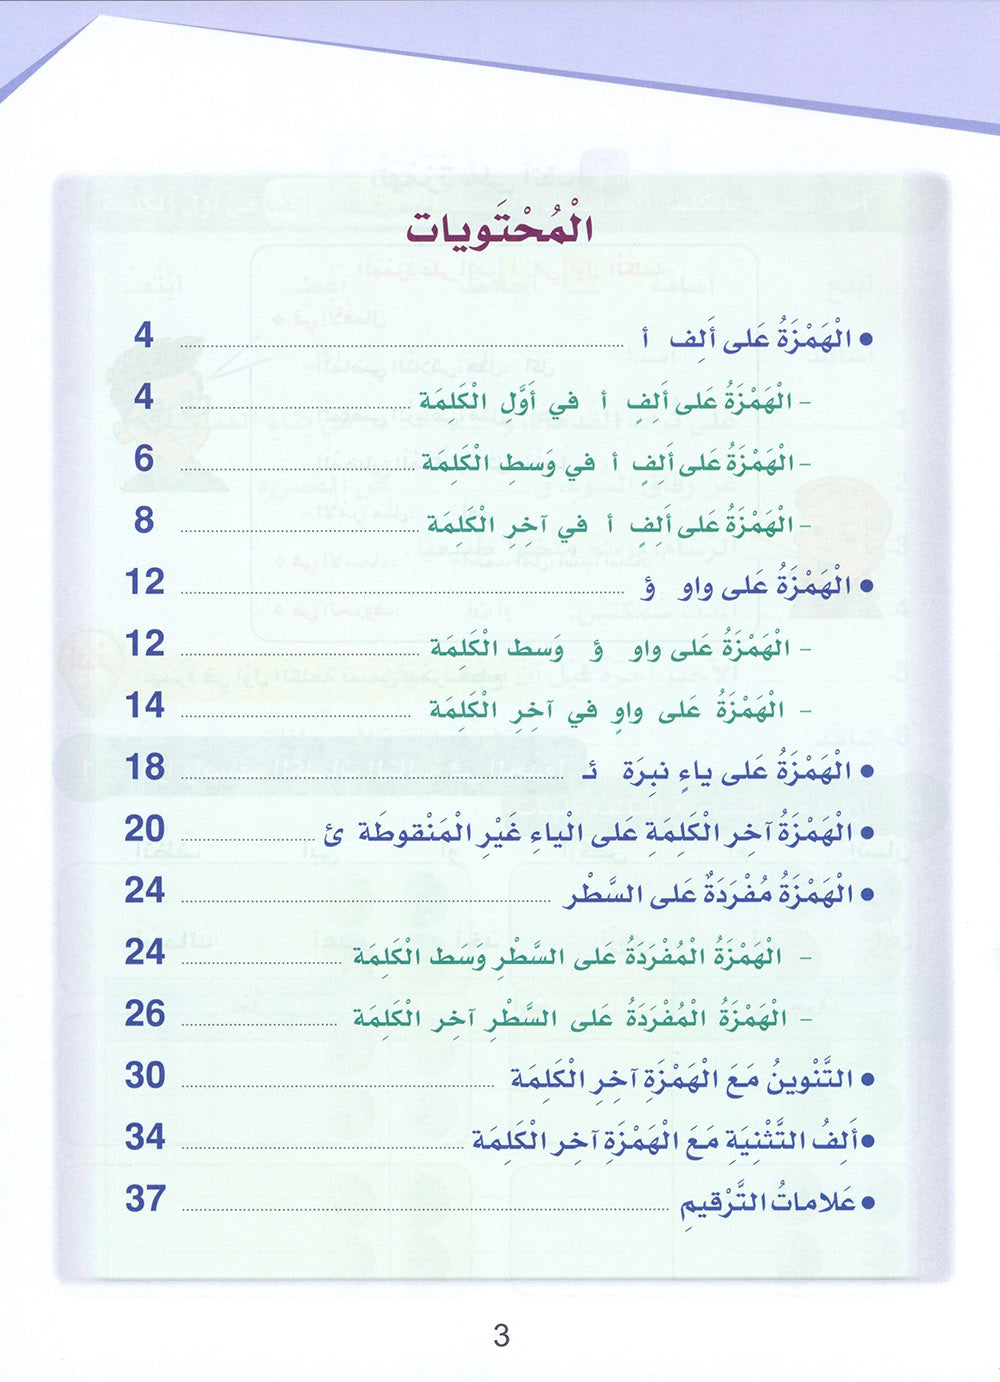 الْمُحْتَويات
• الْهَمْزَةُ عَلى أَلِف أ ........ 4
- الْهَمْزَةُ عَلى أَلِفٍ أ في أَوَّلِ الْكَلِمَة ........ 4
- الْهَمْزَةُ عَلى أَلِفٍ أ في وَسطِ الْكَلِمَة ........ 6
- الْهَمْزَةُ عَلى أَلِفٍ أ في آخِرِ الْكَلِمَة ........ 8
• الْهَمْزَةُ عَلى واو ؤ ........ 12
- الْهَمْزَةُ عَلى واو ؤ وَسط الْكَلِمَة ........ 12
- الْهَمْزَةُ عَلى واوٍ في آخِرِ الْكَلِمَة ........ 14
• الْهَمْزَةُ عَلى ياءٍ نبِرَة ئـ ........ 18
• الْهَمْزَةُ آخِر الْكَلِمَةِ عَلى الْياءِ غَيْرِ الْمَنْقوطَة ئ ........ 20
• الْهَمْزَةُ مُفْرَدَةٌ عَلى السَّطْر ........ 24
- الْهَمْزَةُ الْمُفْرَدَةُ عَلى السَّطْرِ وَسَط الْكَلِمَة ........ 24
- الْهَمْزَةُ الْمُفْرَدَةُ عَلى السَّطْرِ آخِر الْكَلِمَة ........ 26
• التَّنْوينُ مَعَ الْهَمْزَةِ آخِرِ الْكَلِمَة ........ 30
• أَلِفُ التَّثْنِيَةِ مَعَ الْهَمْزَةِ آخِر الْكَلِمَة ........ 34
• عَلاماتُ التَّرْقيمِ ........ 37
3